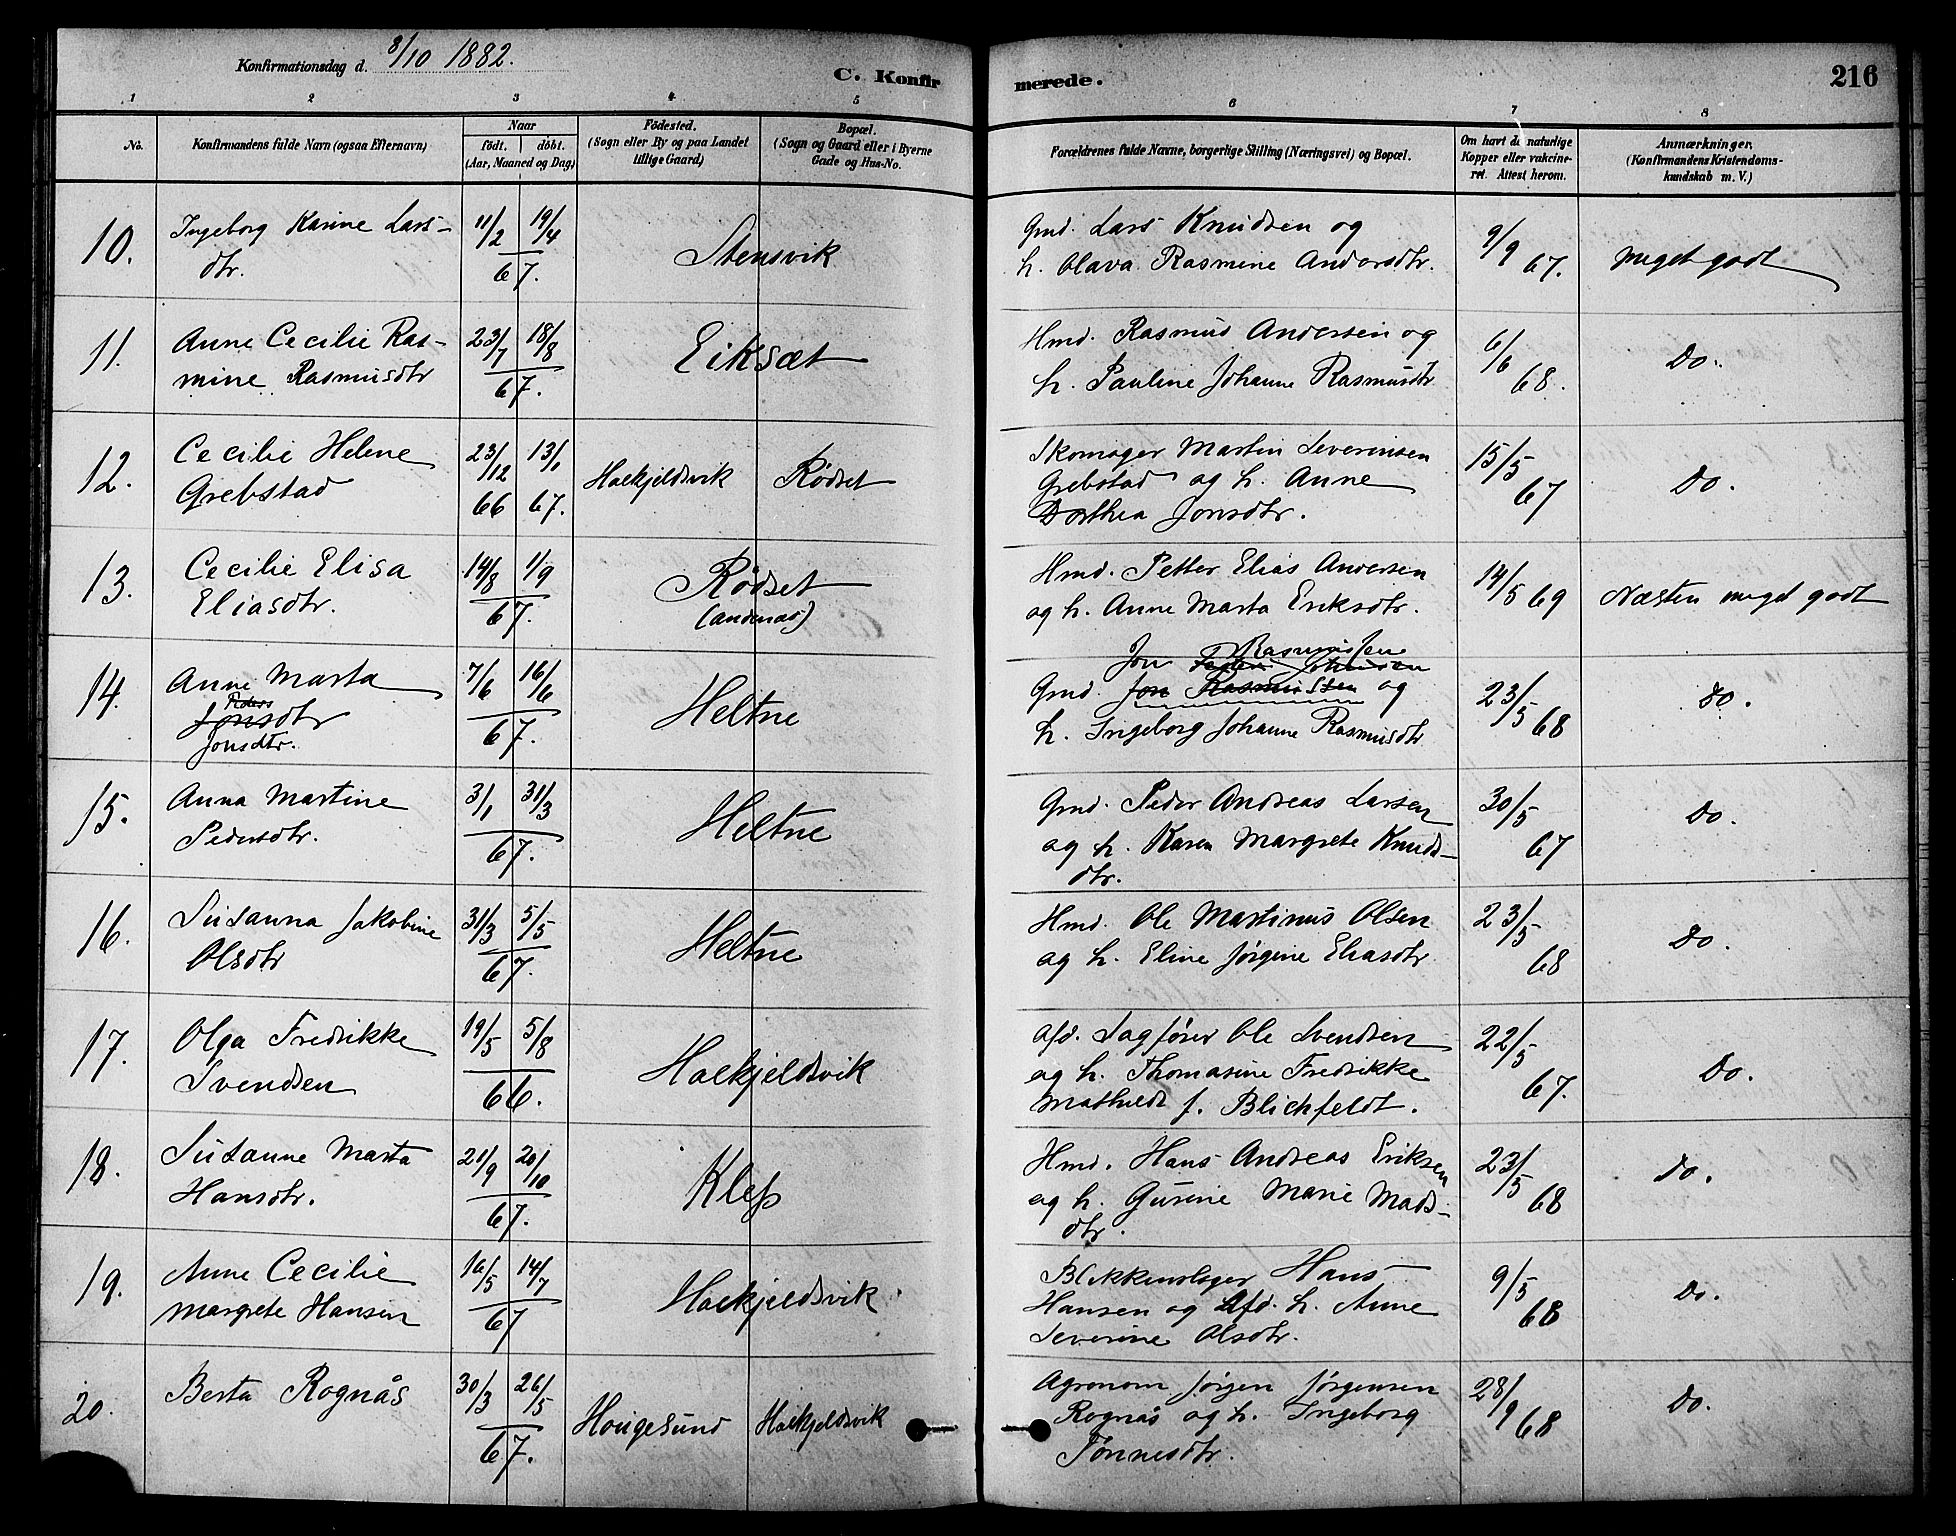 Konfirmationsdag d. 8/10 1882.
C. Konfirmerede.
216
1 2 3 4 5 6 7 8
No.
Konfirmandens fulde Navn (ogsaa Efternavn)
Naar
født. døbt.
(Aar, Maaned og Dag)
Fødested.
(Sogn eller By og paa Landet
tillige Gaard)
Bopæl.
(Sogn og Gaard eller i Byerne
Gade og Hus-No.
Forældrenes fulde Navne, borgerlige Stilling (Næringsvei) og Bopæl.
Om havt de naturlige
Kopper eller vakcine-
ret. Attest herom.
Anmærkninger.
(Konfirmandens Kristendoms-
kundskab m. V.)
10. Ingeborg Karine Lars-
dtr.
11/2 19/4
67.
Stensvik
Gmd. Lars Knudsen og
h. Olava Rasmine Andersdtr.
9/9 67.
Meget godt
11. Anne Cecilie Ras-
mine Rasmusdtr
23/7 18/8
67.
Eiksæt
Hmd. Rasmus Andersen og
h. Pauline Johanne Rasmusdtr
6/6 68.
Do.
12. Cecilie Helene
Grebstad
23/12 13/1
66 67.
Haekjeldsvik Rødset
Skomager Martin Severinsen
Grebstad og h. Anne
Dorthea Jonsdtr.
15/5 67
Do.
13. Cecilie Elisa
Eliasdtr.
14/8 1/9
67.
Rødset
(andenæs)
Hmd. Petter Elias Andersen
og h. Anne Marta Eriksdtr.
14/5 69
Næsten meget godt
14. Anne Marta
Peders
Jonsdtr
Jonsdtr.
7/6 16/6
67.
Heltne
Rasmussen
Jon Peder Johnsen
Gmd. Jon Rasmussen og
h. Ingeborg Johanne Rasmusdtr
23/5 68
Do.
15. Anna Martine
Pedersdtr.
3/1 31/3
67.
Heltne
Gmd. Peder Andreas Larsen
og h. Karen Margrete Knuds-
dtr.
30/5 67
Do.
16. Susanna Jakobine
Olsdtr
31/3 5/5
67.
Heltne
Hmd. Ole Martinus Olsen
og h. Eline Jørgine Eliasdtr
23/5 68
Do.
17. Olga Fredrikke
Svendsen
19/5 5/8
66.
Haekjeldsvik
Afd. Sagfører Ole Svendsen
og h. Thomasine Fredrikke
Mathilde f. Blichfeldt.
22/5 67.
Do.
18. Susanne Marta
Hansdtr.
21/9 20/10
67.
Klep
Hmd. Hans Andreas Eriksen
og h. Gurine Marie Mads-
dtr.
23/5 68
Do.
19. Anne Cecilie
Margrete Hansen
16/5 14/7
67
Haekjeldsvik
Blikkenslager Hans
Hansen og Afd. h. Anne
Severine Olsdtr.
9/5 68
Do.
20. Berta Rognås
30/3 26/5
67.
Hougesund Haekjeldsvik
Agronom Jørgen Jørgensen
Rognås og h. Ingeborg
Tønnesdtr.
28/9 68
Do.